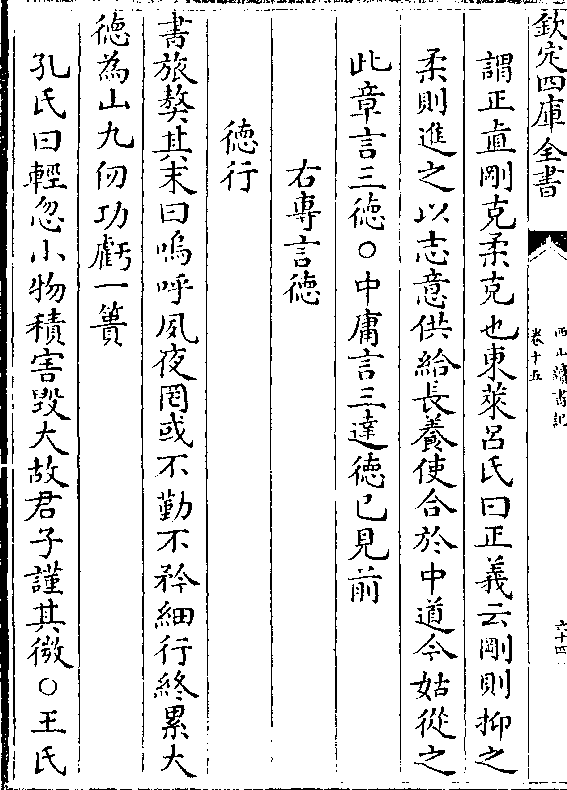 欽定四庫全書
西山讀書記
卷十五
六十四
謂正直剛克柔克也東萊呂氏曰正義云剛則抑之
柔則進之以志意供給長養使合於中道今姑從之
此章言三德○中庸言三達德已見前
右專言德
德行
書旅獒其末曰嗚呼夙夜罔或不勤不矜細行終累大
德為山九仞功虧一簣
孔氏曰輕忽小物積害毀大故君子謹其微○王氏